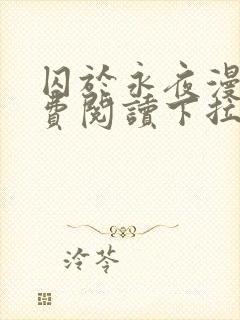 囚於永夜漫
費閱讀下拉
泠苓